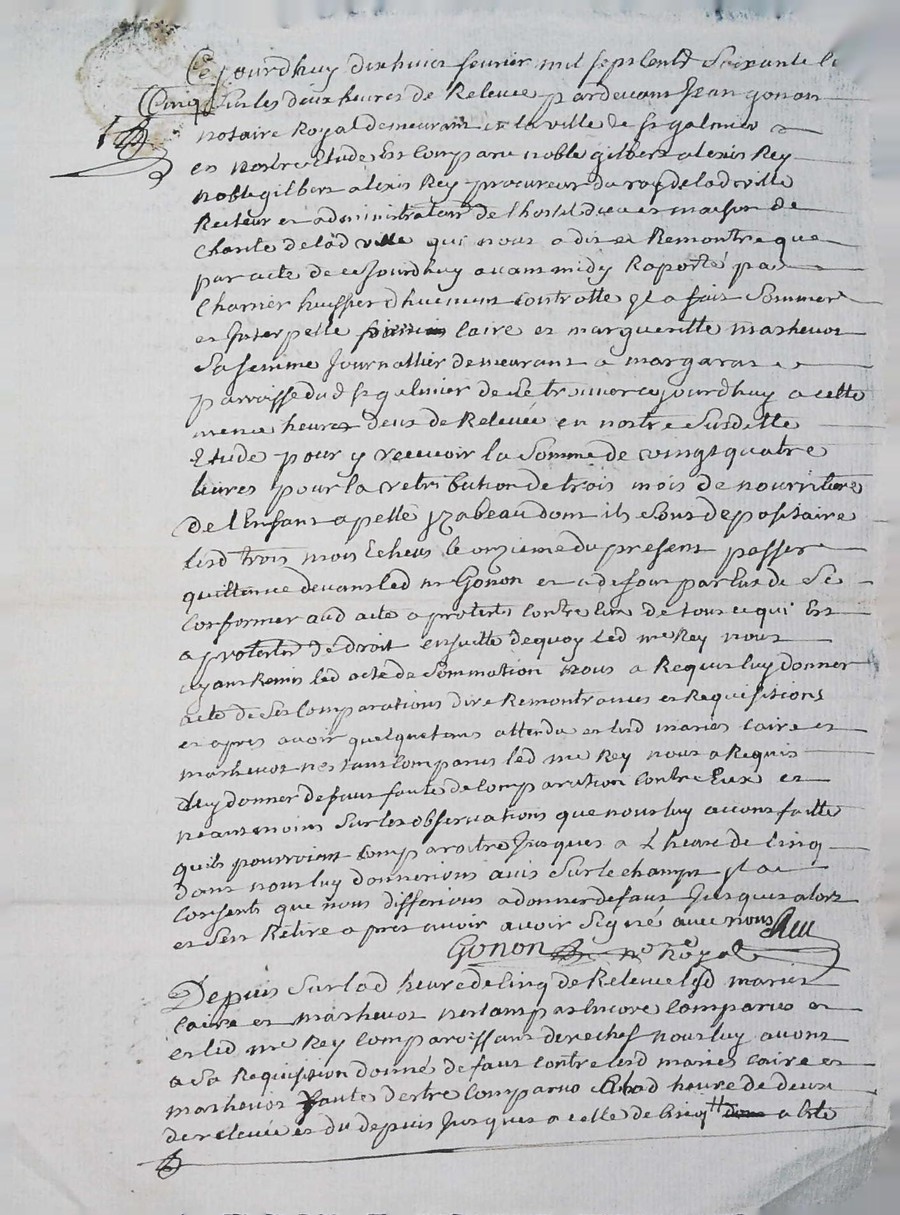 Ce jourdhuy dixhuict fevrier mil sept cents soixante et
Cinq sur les deux heures de Relevée pardevant Jean gonon
notaire Royal demeurant en la ville de st galmier
en nostre Etude Est Comparu noble gilbert alexis Rey
noble gilbert alexis Rey procureur du roy de lad ville
Recteur et administrateur de l'hostel dieu et maison de
Charité de lad ville qui nous a dit et Remontré que
par acte de ce Jourdhuy avant midy Raporté par
Charrier huissier dhuement Controllé Il a fait Sommer
et Interpellé laire et margueritte mathevot
Sa femme Journallier demeurant a margarat
parroisse dud st galmier de se trouver ce jourdhuy a cette
meme heure deux de Relevée en nostre Susditte
Etude pour y recevoir la Somme de vingt quatre
livres pour la retribution de trois mois de nourriture
de l'Enfant apellé Izabeau dont ils sont depositaire
lesd trois mois Echeus le onzieme du present passer
quittence devant led me Gonon et a defaut par Eux de se
Conformer aud acte a protesté contre Eux de tout ce qui Est
a protester de droit ensuitte de quoy led me Rey nous
ayant Remis led acte de Sommation Nous a Requis luy donner
acte de ses Comparutions dire Remontrances et Requisitions
et apres avoir quelque tems attendu et lesd mariés laire et
mathevot nestant Comparus led me Rey nous a Requis
luy donner defaut faute de Comparution Contre Eux et
neantmoins Sur les observations que nous luy avons faitte
quils pourroient Comparoitre Jusques a L'heure de Cinq
dont nous luy donnerions avis Sur le champ Il a
Consenti que nous differions a donner defaut Jusques alors
et sest Retiré apres avoir avoir Signé avec nous Rey
Gonon no Royal
Depuis Sur lad heure de Cinq de Relevée lesd mariés
laire et mathevot nestant pas Encore Comparus et
et led me Rey Comparoissant derechef nous luy avons
a sa Requisition donné defaut Contre lesd mariés laire et
mathevot faute destre Comparus a lad heure de deux
de relevée et du depuis Jusques a celle de Cinq